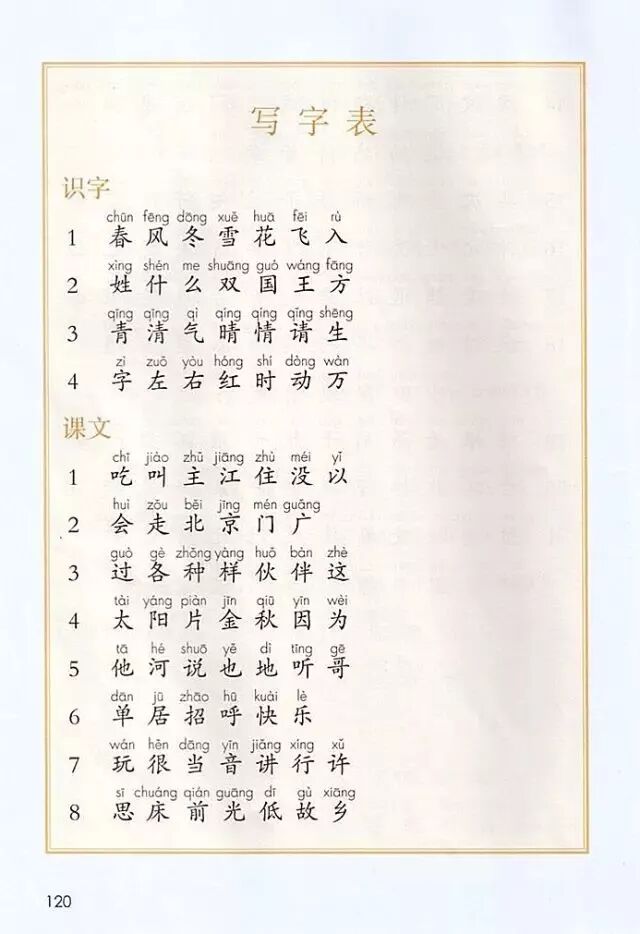 写字表
识字
chūn fēng dōng xuě huā fēi rù
1 春 风 冬 雪 花 飞 入
xìng shén me shuāng guó wáng fāng
2 姓 什 么 双 国 王 方
qīng qīng qì qíng qíng qǐng shēng
3 青 清 气 晴 情 请 生
zì zuǒ yòu hóng shí dòng wàn
4 字 左 右 红 时 动 万
课文
chī jiào zhǔ jiāng zhù méi yǐ
1 吃 叫 主 江 住 没 以
huì zǒu běi jīng mén guǎng
2 会 走 北 京 门 广
guò gè zhǒng yàng huǒ bàn zhè
3 过 各 种 样 伙 伴 这
tài yáng piàn jīn qiū yīn wèi
4 太 阳 片 金 秋 因 为
tā hé shuō yě dì tīng gē
5 他 河 说 也 地 听 哥
dān jū zhāo hū kuài lè
6 单 居 招 呼 快 乐
wán hěn dāng yīn jiǎng xíng xǔ
7 玩 很 当 音 讲 行 许
sī chuáng qián guāng dī gù xiāng
8 思 床 前 光 低 故 乡
120